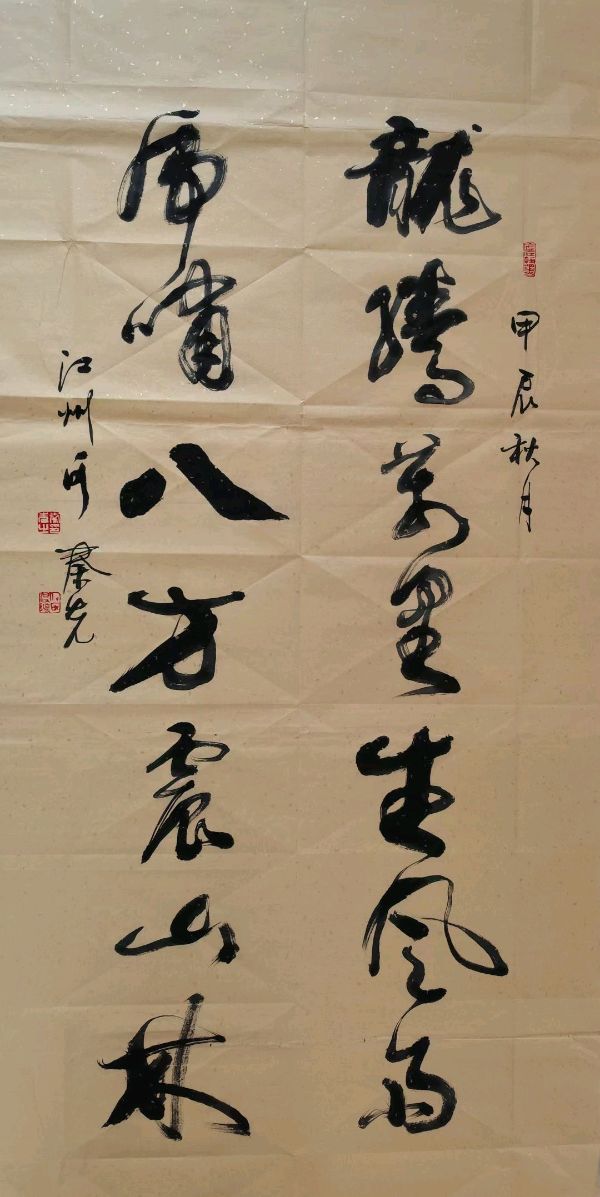 甲辰秋月
龍騰萬里生風雨
虎嘯八方震山林
江州
秦光